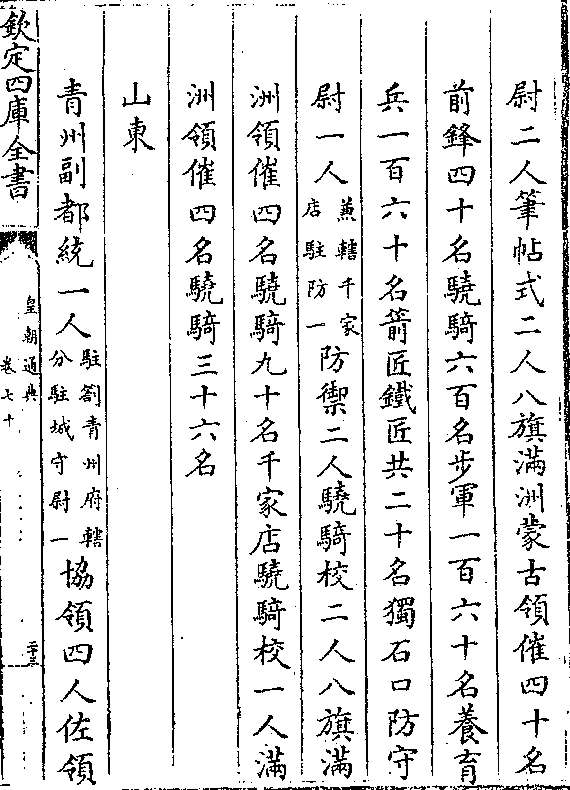 尉二人筆帖式二人八旗滿洲蒙古領催四十名
前鋒四十名驍騎六百名步軍一百六十名養育
兵一百六十名箭匠鐵匠共二十名獨石口防守
尉一人兼轄千家店駐防一防禦二人驍騎校二人八旗滿
洲領催四名驍騎九十名千家店驍騎校一人滿
洲領催四名驍騎三十六名
山東
青州副都統一人駐劄青州府轄分駐城守尉一協領四人佐領
欽定四庫全書
皇朝通典
卷七十
二十三